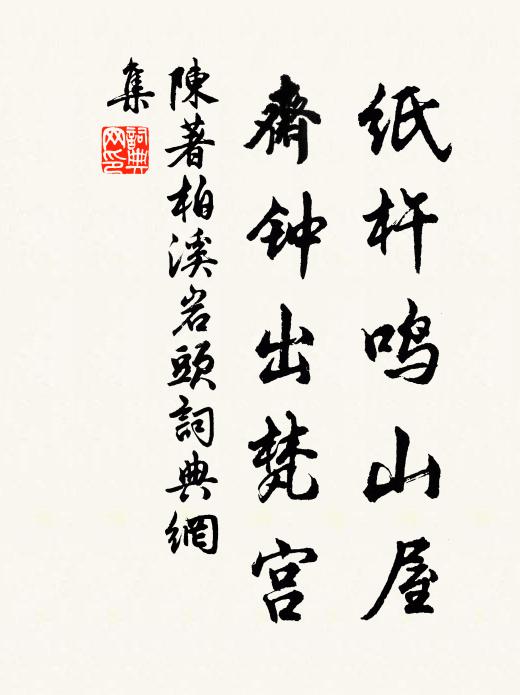 纸杵鸣山屋
斋钟出梵宫
陳著柏溪岩頭詞典網
集
詞典网印